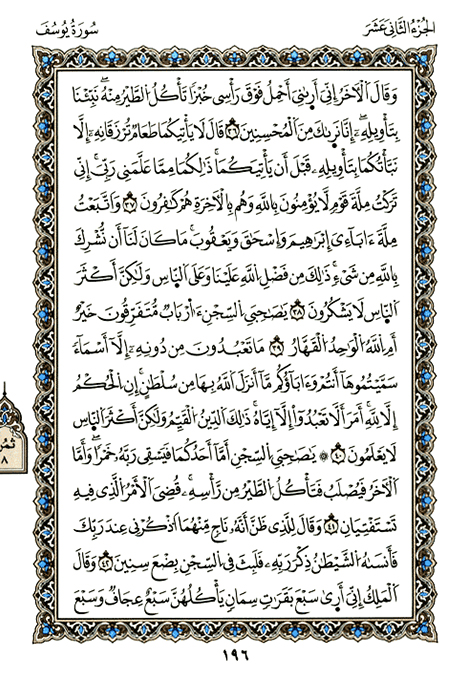 الجُزْءُ الثَّانِي عَشَر
سُورَةُ يُوسُفَ
وَقَالَ اَلْأٓخَرُ إِنِّيَ أَر۪ىٰنِيَ أَحْمِلُ فَوْقَ رَأْسِي خُبْزًا تَأْكُلُ الطَّيْرُ مِنْهُ نَبِّئْنَا
بِتَأْوِيلِهِۦٓ إِنَّا نَر۪ىٰكَ مِنَ اَلْمُحْسِنِينَ ٣٦ قَالَ لَا يَأْتِيكُمَا طَعَامٌ تُرْزَقَانِهِۦٓ إِلَّا
نَبَّأْتُكُمَا بِتَأْوِيلِهِۦ قَبْلَ أَن يَأْتِيَكُمَا ذَٰلِكُمَا مِمَّا عَلَّمَنِي رَبِّيَ إِنِّي
تَرَكْتُ مِلَّةَ قَوْمٍ لَّا يُؤْمِنُونَ بِاللَّهِ وَهُم بِالْأٓخِرَةِ هُمْ كَٰفِرُونَ ٣٧ وَاتَّبَعْتُ
مِلَّةَ ءَابَآءِيَ إِبْرَٰهِيمَ وَإِسْحَٰقَ وَيَعْقُوبَ مَا كَانَ لَنَآ أَن نُّشْرِكَ
بِاللَّهِ مِن شَيْءٍ ذَٰلِكَ مِن فَضْلِ اِللَّهِ عَلَيْنَا وَعَلَى اَلنَّاسِ وَلَٰكِنَّ أَكْثَرَ
اَلنَّاسِ لَا يَشْكُرُونَ ٣٨ يَٰصَٰحِبَيِ اِلسِّجْنِ ءَا۬رْبَابٌ مُّتَفَرِّقُونَ خَيْرٌ
أَمِ اِللَّهُ اُلْوَٰحِدُ اُلْقَهَّارُ ٣٩ مَا تَعْبُدُونَ مِن دُونِهِۦٓ إِلَّآ أَسْمَآءً
سَمَّيْتُمُوهَآ أَنتُمْ وَءَابَآؤُكُم مَّآ أَنزَلَ اَللَّهُ بِهَا مِن سُلْطَٰنٍ إِنِ اِلْحُكْمُ
إِلَّا لِلَّهِ أَمَرَ أَلَّا تَعْبُدُوٓاْ إِلَّآ إِيَّاهُ ذَٰلِكَ اَلدِّينُ اُلْقَيِّمُ وَلَٰكِنَّ أَكْثَرَ اَلنَّاسِ
لَا يَعْلَمُونَ ٤٠ ۞ يَٰصَٰحِبَيِ اِلسِّجْنِ أَمَّآ أَحَدُكُمَا فَيَسْقِي رَبَّهُۥ خَمْرًا وَأَمَّا
اَلْأٓخَرُ فَيُصْلَبُ فَتَأْكُلُ اُلطَّيْرُ مِن رَّأْسِهِۦ قُضِيَ اَلْأَمْرُ اُلَّذِي فِيهِ
تَسْتَفْتِيَٰنِ ٤١ وَقَالَ لِلَّذِي ظَنَّ أَنَّهُۥ نَاجٍ مِّنْهُمَا اَذْكُرْنِي عِندَ رَبِّكَ
فَأَنسَىٰهُ اُلشَّيْطَٰنُ ذِكْرَ رَبِّهِۦ فَلَبِثَ فِي اِلسِّجْنِ بِضْعَ سِنِينَ ٤٢ وَقَالَ
اَلْمَلِكُ إِنِّيَ أَر۪ىٰ سَبْعَ بَقَرَٰتٍ سِمَانٍ يَأْكُلُهُنَّ سَبْعٌ عِجَافٌ وَسَبْعَ
ثمن
٨
١٩٦